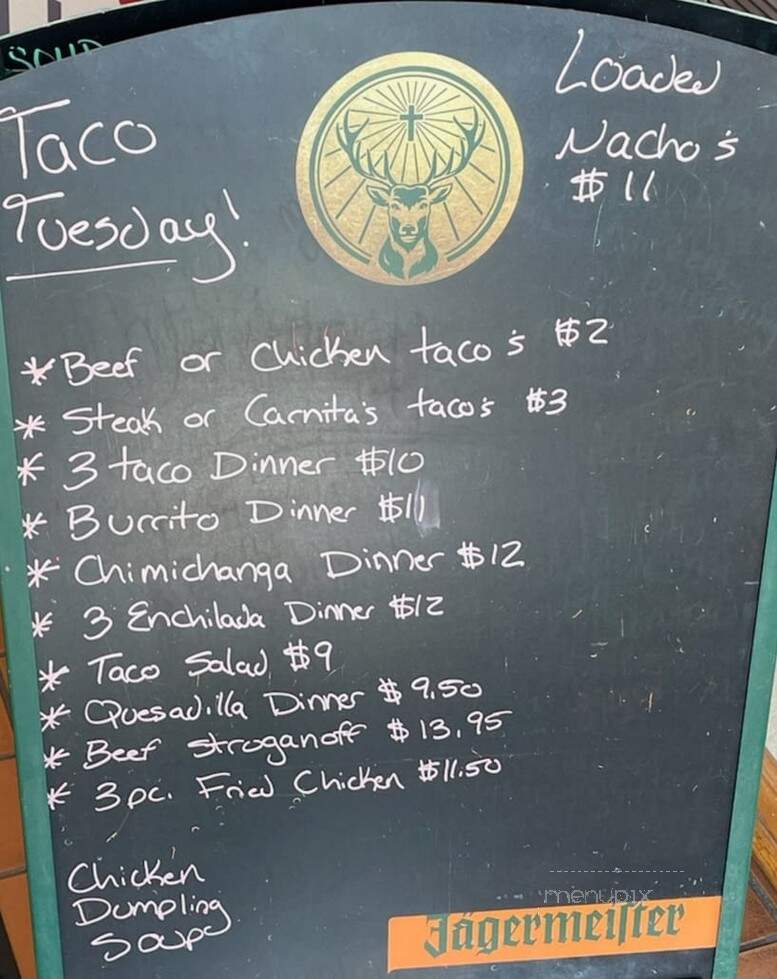 SOUP
Taco
Tuesday!
Loaded
Nacho's
$11
* Beef or Chicken taco's $2
* Steak or Carnita's taco's $3
* 3 taco Dinner $10
* Burrito Dinner $11
* Chimichanga Dinner $12
* 3 Enchilada Dinner $12
* Taco Salad $9
* Quesadilla Dinner $9.50
* Beef Stroganoff $13.95
* 3pc. Fried Chicken $11.50
Chicken
Dumpling
Soup
menupix
Jägermeister